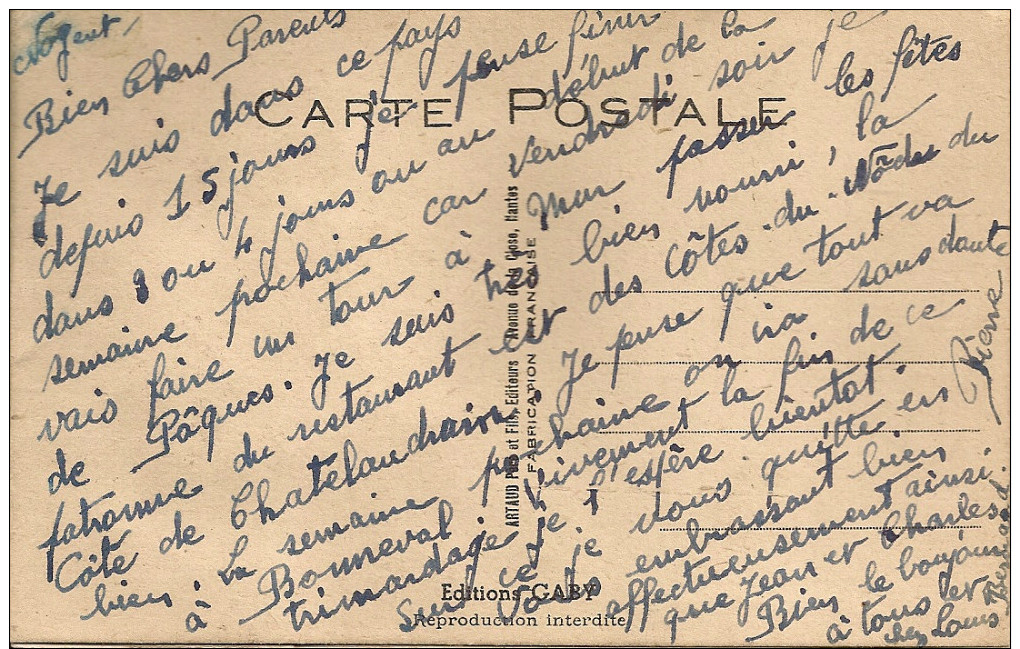 Nogent,
Bien Chers Parents
Je suis dans ce pays
depuis 15 jours je pense finir
dans 3 ou 4 jours ou au début de la
semaine prochaine car vendredi soir je
vais faire un tour à Mur passer les fêtes
de Pâques. Je suis très bien nourri, la
patronne du restaurant est des Côtes-du-Nord du
Côté de Chatelaudren. Je pense que tout va
bien. La semaine prochaine on ira sans doute
à Bonneval. Vivement la fin de ce
trimardage je l'espère bientôt.
Sur ce je vous quitte en
vous embrassant bien
affectueusement ainsi
que Jean et Charles.
Bien le bonjour
à tous et
chez Louis
Bernard
Pierre
CARTE POSTALE
ARTAUD Père et Fils, Editeurs, Avenue de la Close, Nantes
FABRICATION FRANÇAISE
Editions GABY
Reproduction interdite